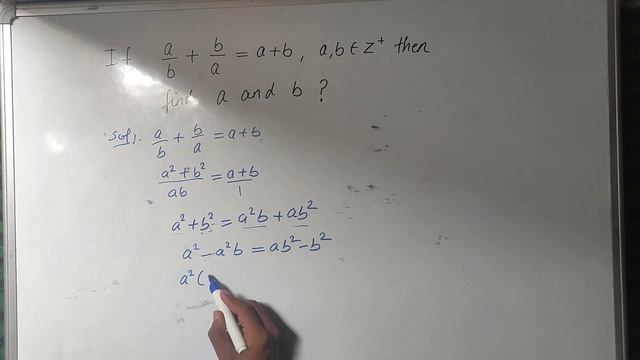 If a/b + b/a = a+b, a,b ∈ Z⁺ then
find a and b ?
Sol). a/b + b/a = a+b
(a²+b²)/ab = (a+b)/1
a²+b² = a²b + ab²
a² - a²b = ab² - b²
a² (